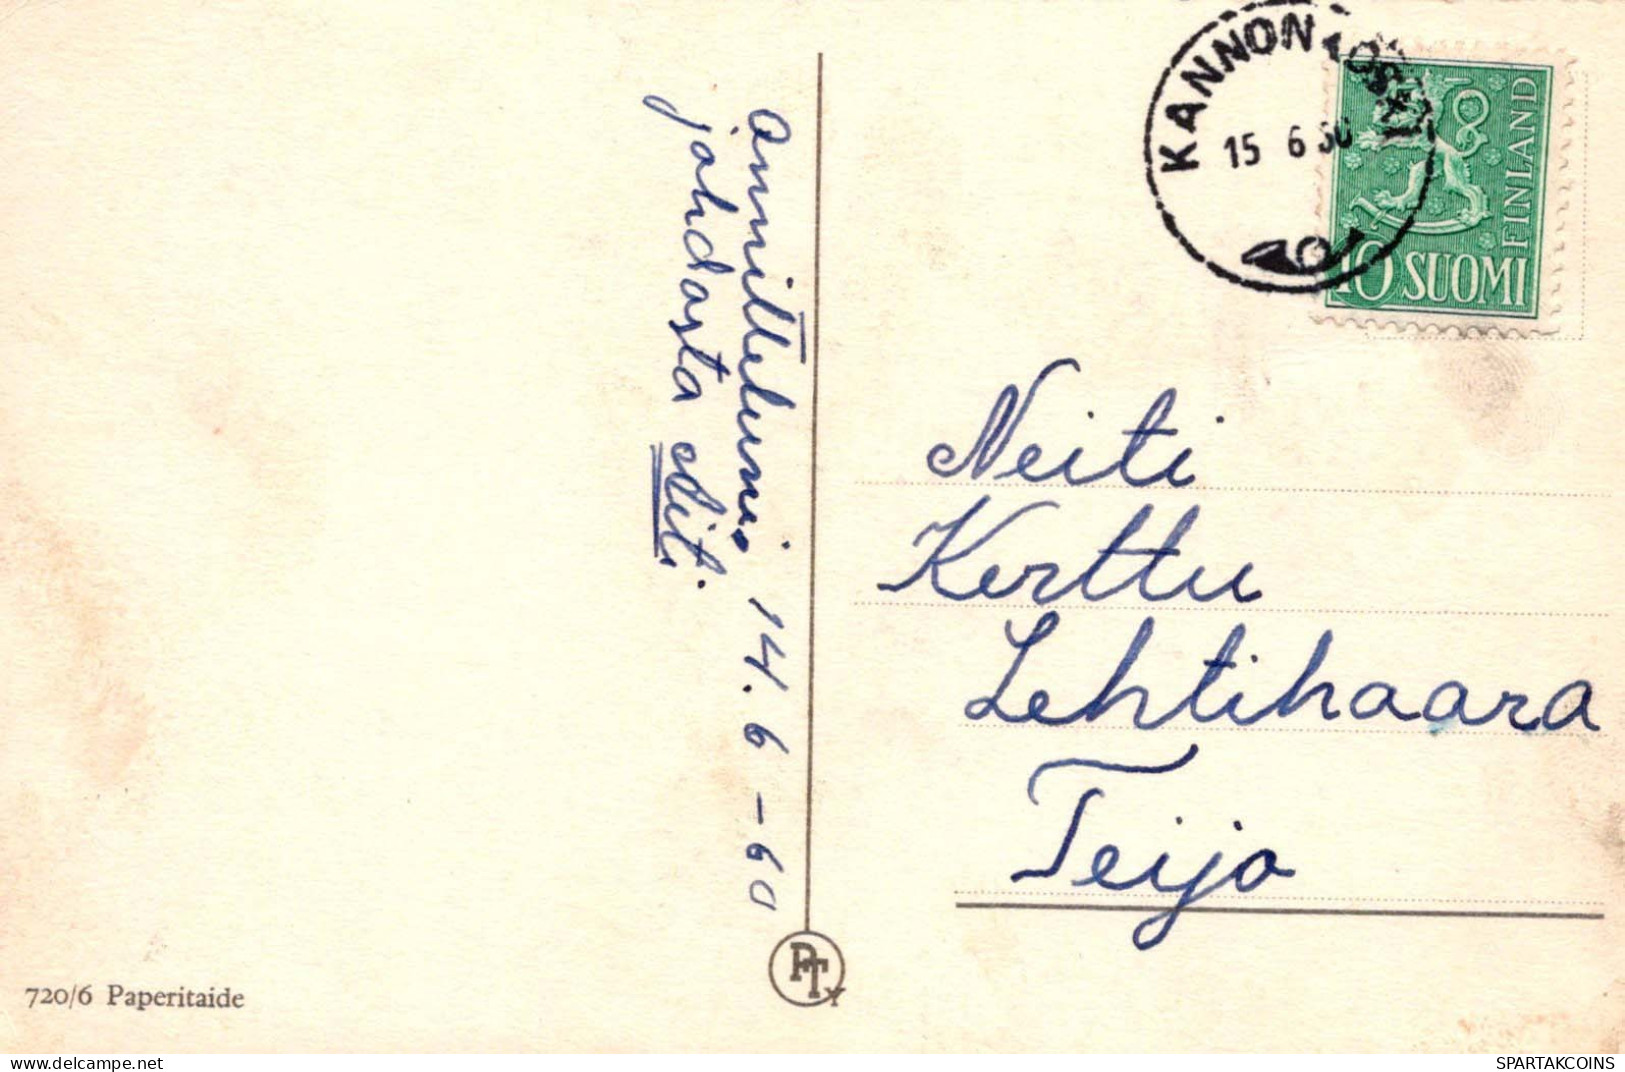 Onnittelumi 14.6-60
johdosta Siti.
KANNONKOSKI
15 6 60
FINLAND
10 SUOMI
Neiti
Kerttu
Lehtihaara
Teijo
720/6 Paperitaide
PTY
www.delcampe.net
SPARTAKCOINS